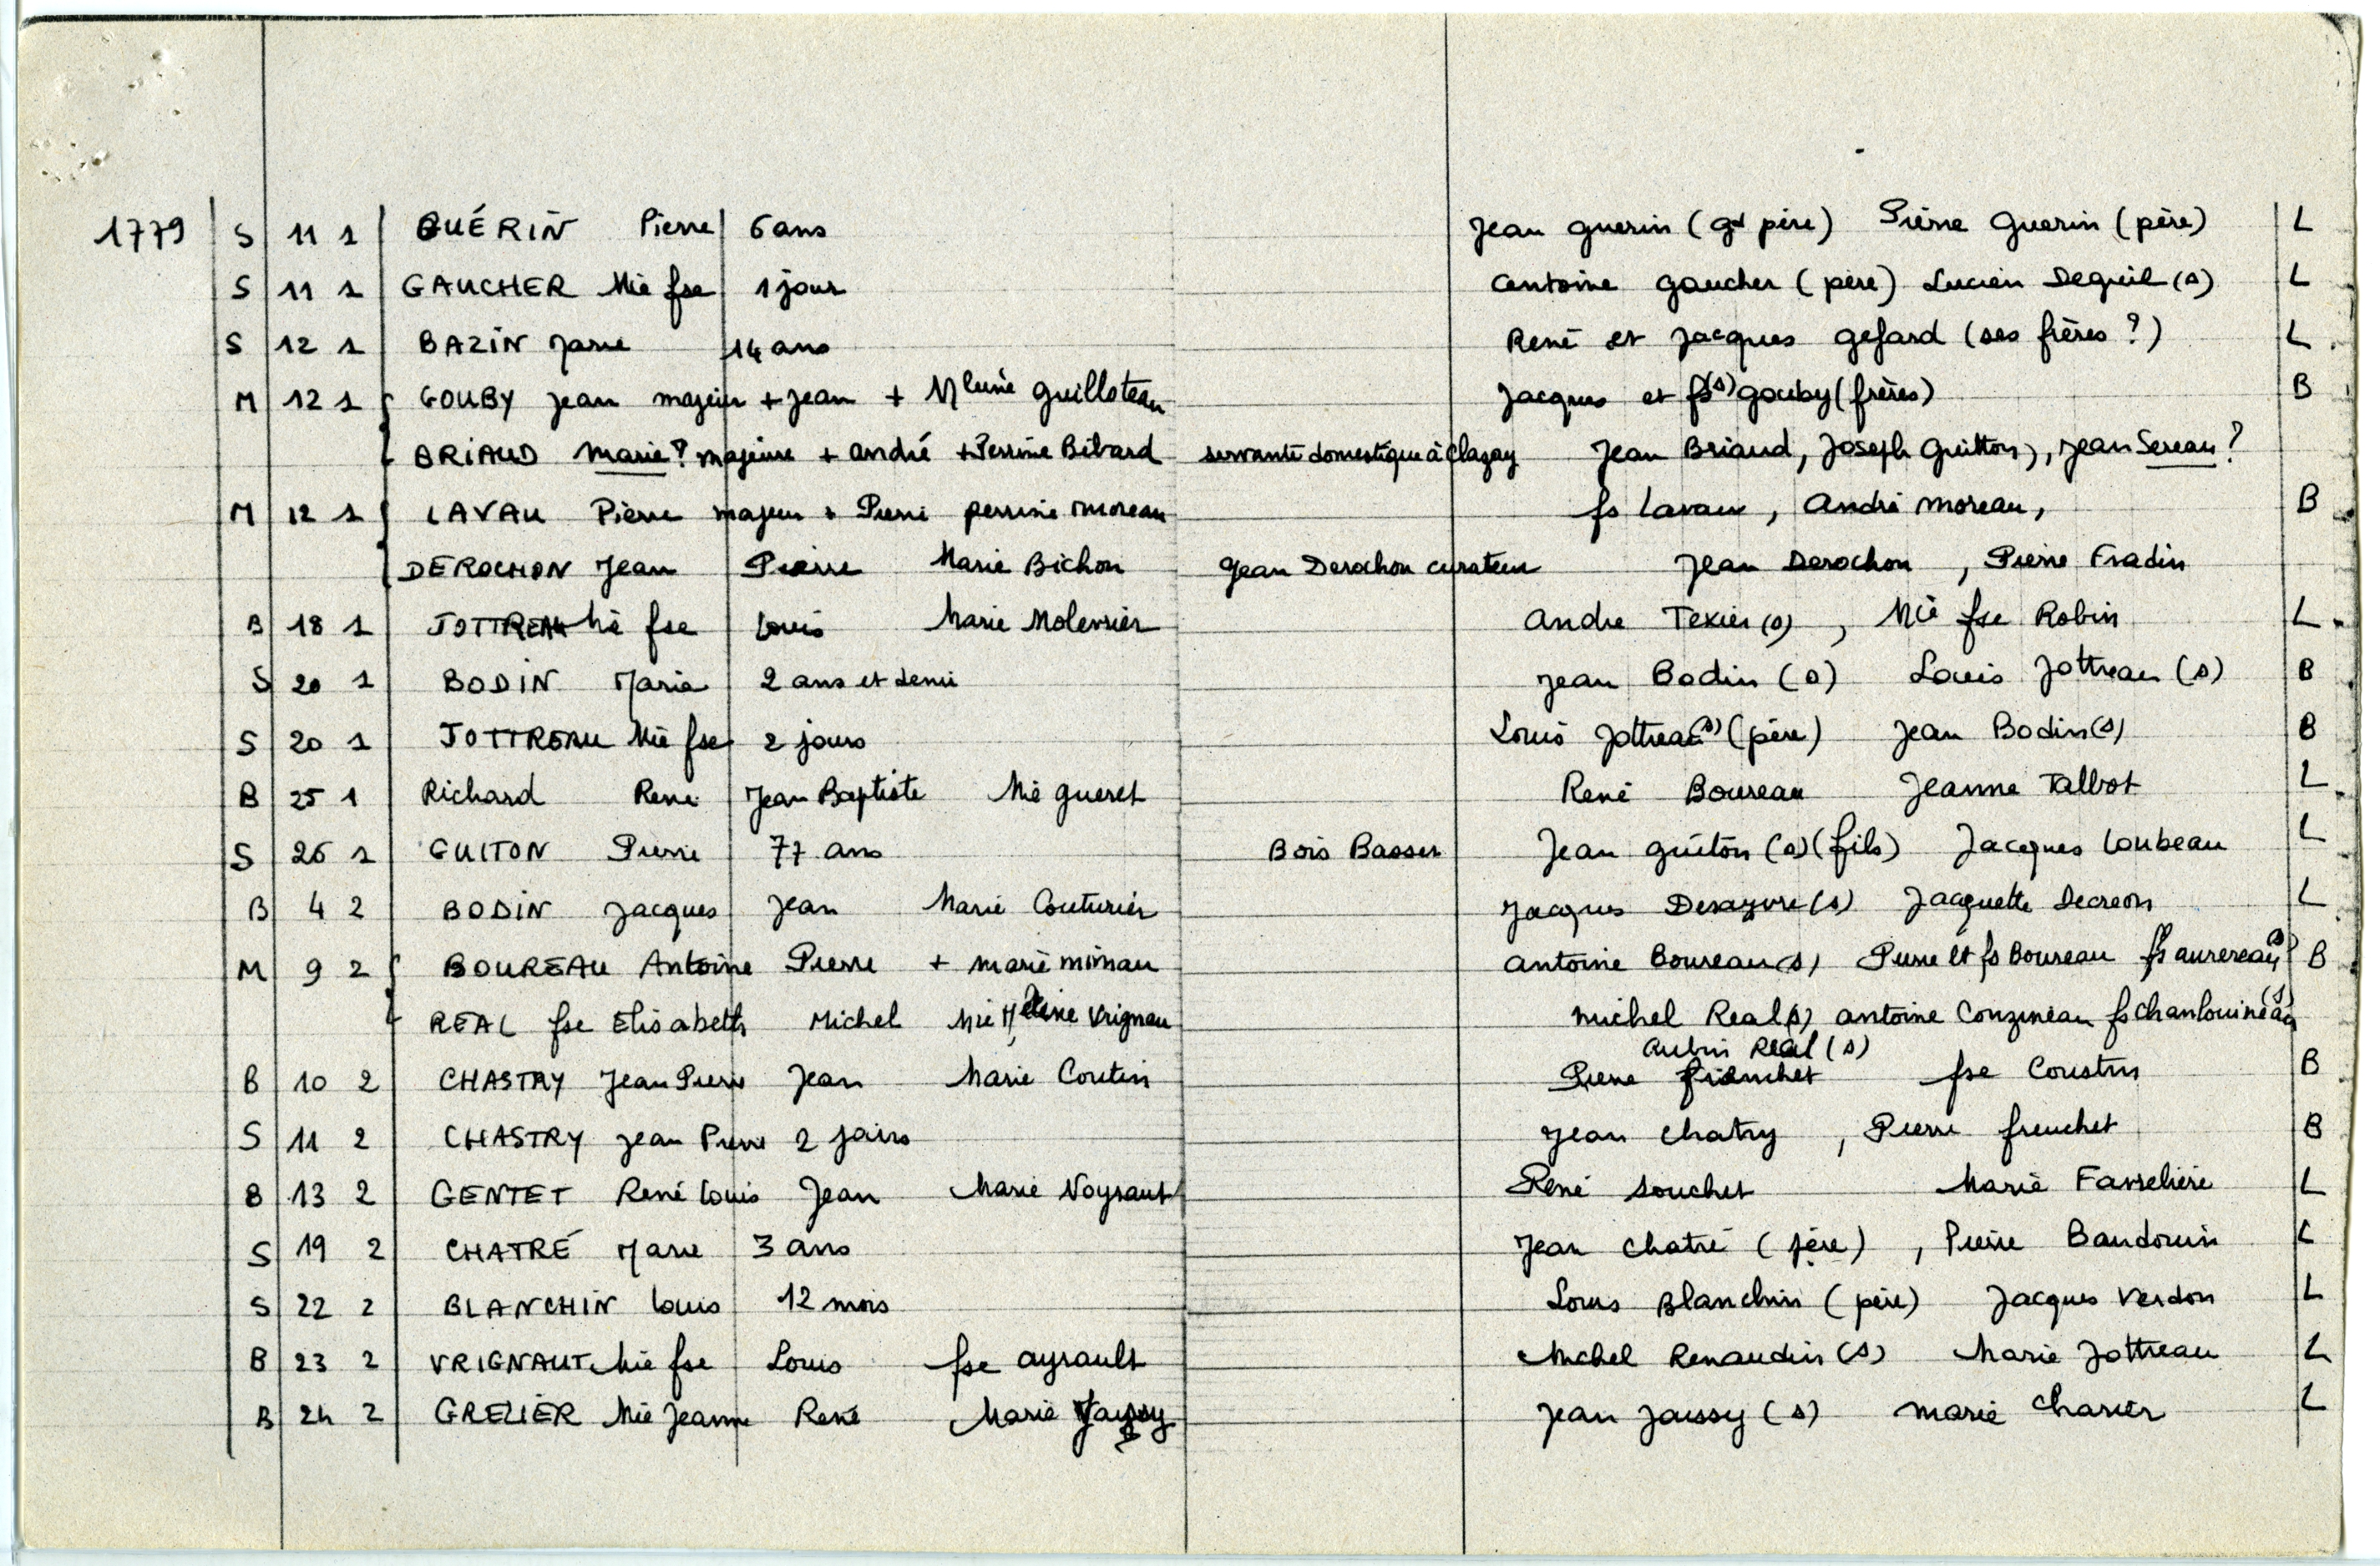 1779 S 11 1 GUÉRIN Pierre 6 ans Jean guerin (gd père) Pierre Guerin (père) L
S 11 1 GAUCHER Mie fse 1 jour antoine gaucher (père) Lucien Deguil (s) L
S 12 1 BAZIN Marie 14 ans René et Jacques gefard (ses frères ?) L
M 12 1 GOUBY Jean majeur + Jean + Mleine guilloteau Jacques et fs(s) gouby (frères) B
BRIAUD Marie? majeure + andré + Perrine Bibard servante domestique à Clazay Jean Briaud, Joseph Guitton, Jean Sereau ?
M 12 1 LAVAU Pierre majeur + Pierre perrine moreau fs Lavau, André moreau, B
DEROCHON Jean Pierre Marie Bichon Jean Derochon curateur Jean Derochon, Pierre Fradin
B 18 1 JOTTREAU Mie fse Louis Marie Molenier andre Texier (s), Mie fse Robin L
S 20 1 BODIN Marie 2 ans et demi Jean Bodin (s) Louis Jottreau (s) B
S 20 1 JOTTREAU Mie fse 2 jours Louis Jottreau (s) (père) Jean Bodin (s) B
B 25 1 Richard René Jean Baptiste Mie gueret René Boureau Jeanne Talbot L
S 26 1 GUITON Pierre 77 ans Bois Basset Jean guiton (s) (fils) Jacques Loubeau L
B 4 2 BODIN Jacques Jean Marie Couturier Jacques Desayvre (s) Jacquette Decreon L
M 9 2 BOUREAU Antoine Pierre + marie mimau antoine Boureau (s) Pierre et fs Boureau fs aurereau (s) B
REAL fse Elisabeth Michel Mie Hélène Vrignau michel Real (s) antoine Couzineau fs Chanlouineau (s)
aubin Real (s)
B 10 2 CHASTRY Jean Pierre Jean Marie Coutin Pierre fruchet fse Coustin B
S 11 2 CHASTRY Jean Pierre 2 jours Jean Chatry, Pierre freuchet B
B 13 2 GENTET René Louis Jean Marie Noyraut René Souchet Marie Fasseliere L
S 19 2 CHATRÉ Marie 3 ans Jean Chatré (père), Pierre Baudouin L
S 22 2 BLANCHIN Louis 12 mois Louis Blanchin (père) Jacques Verdon L
B 23 2 VRIGNAUT Mie fse Louis fse ayrault Michel Renaudin (s) Marie Jottreau L
B 24 2 GRELIER Mie Jeanne René Marie Jaussy Jean Jaussy (s) marie Charier L